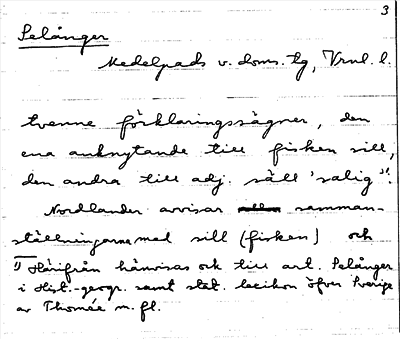 3
Selånger
Medelpads v. doms. tg, Vrnl. l.
tvenne förklaringssägner, den
ena anknytande till fisken sill,
den andra till adj. säll 'salig'¹⁾.
Nordlander avvisar samman-
ställningarna med sill (fisken) och
¹⁾ Härifrån hänvisas ock till art. Selånger
i Hist.-geogr. samt stat. lexikon öfver Sverige
av Thomée m. fl.